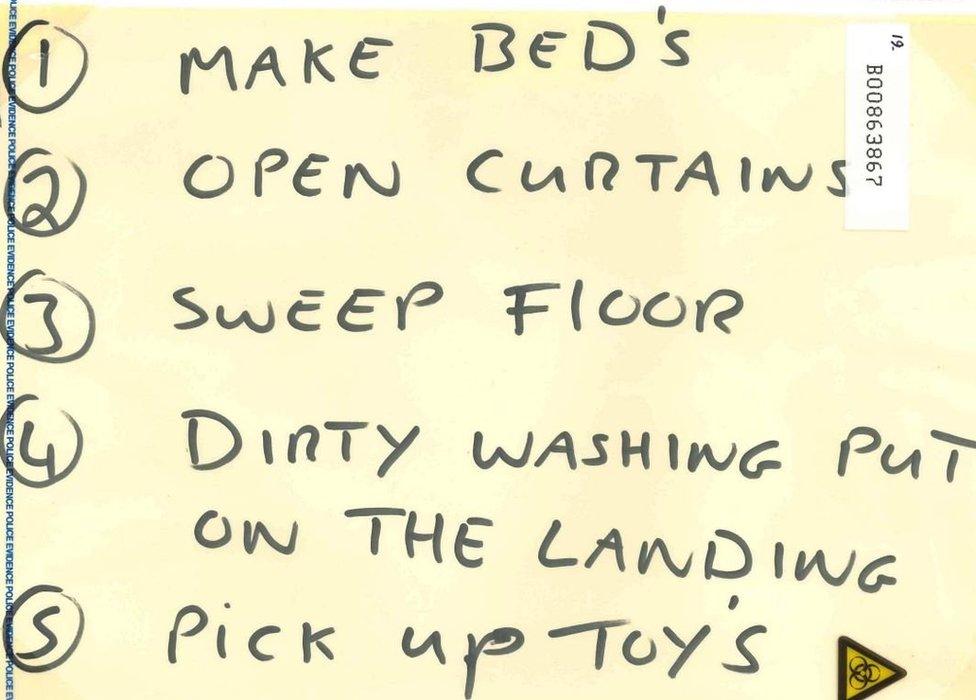 1 MAKE BED'S
2 OPEN CURTAINS
3 SWEEP FLOOR
4 DIRTY WASHING PUT
ON THE LANDING
5 PICK UP TOY'S
19.
B00863867
POLICE EVIDENCE POLICE EVIDENCE POLICE EVIDENCE POLICE EVIDENCE POLICE EVIDENCE POLICE EVIDENCE POLICE EVIDENCE